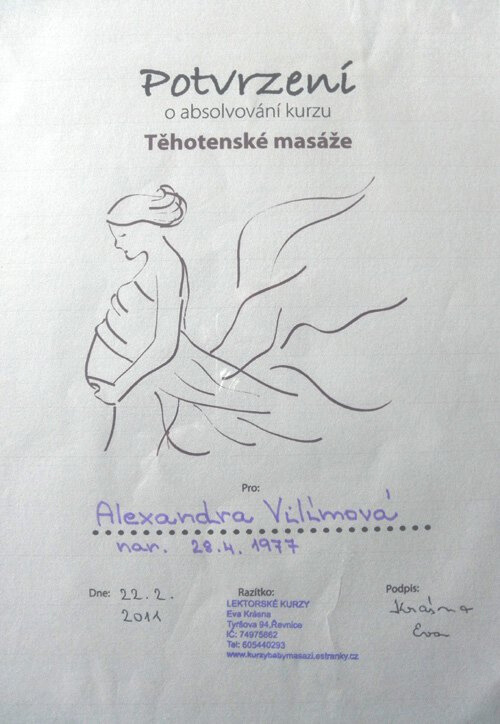 Potvrzení
o absolvování kurzu
Těhotenské masáže
Pro:
Alexandra Vilímová
nar. 28.4. 1977
Dne: 22.2.
2011
Razítko:
LEKTORSKÉ KURZY
Eva Krásná
Tyršova 94,Řevnice
IČ: 74975862
Tel: 605440293
www.kurzybabymasazi.estranky.cz
Podpis:
Krásná
Eva